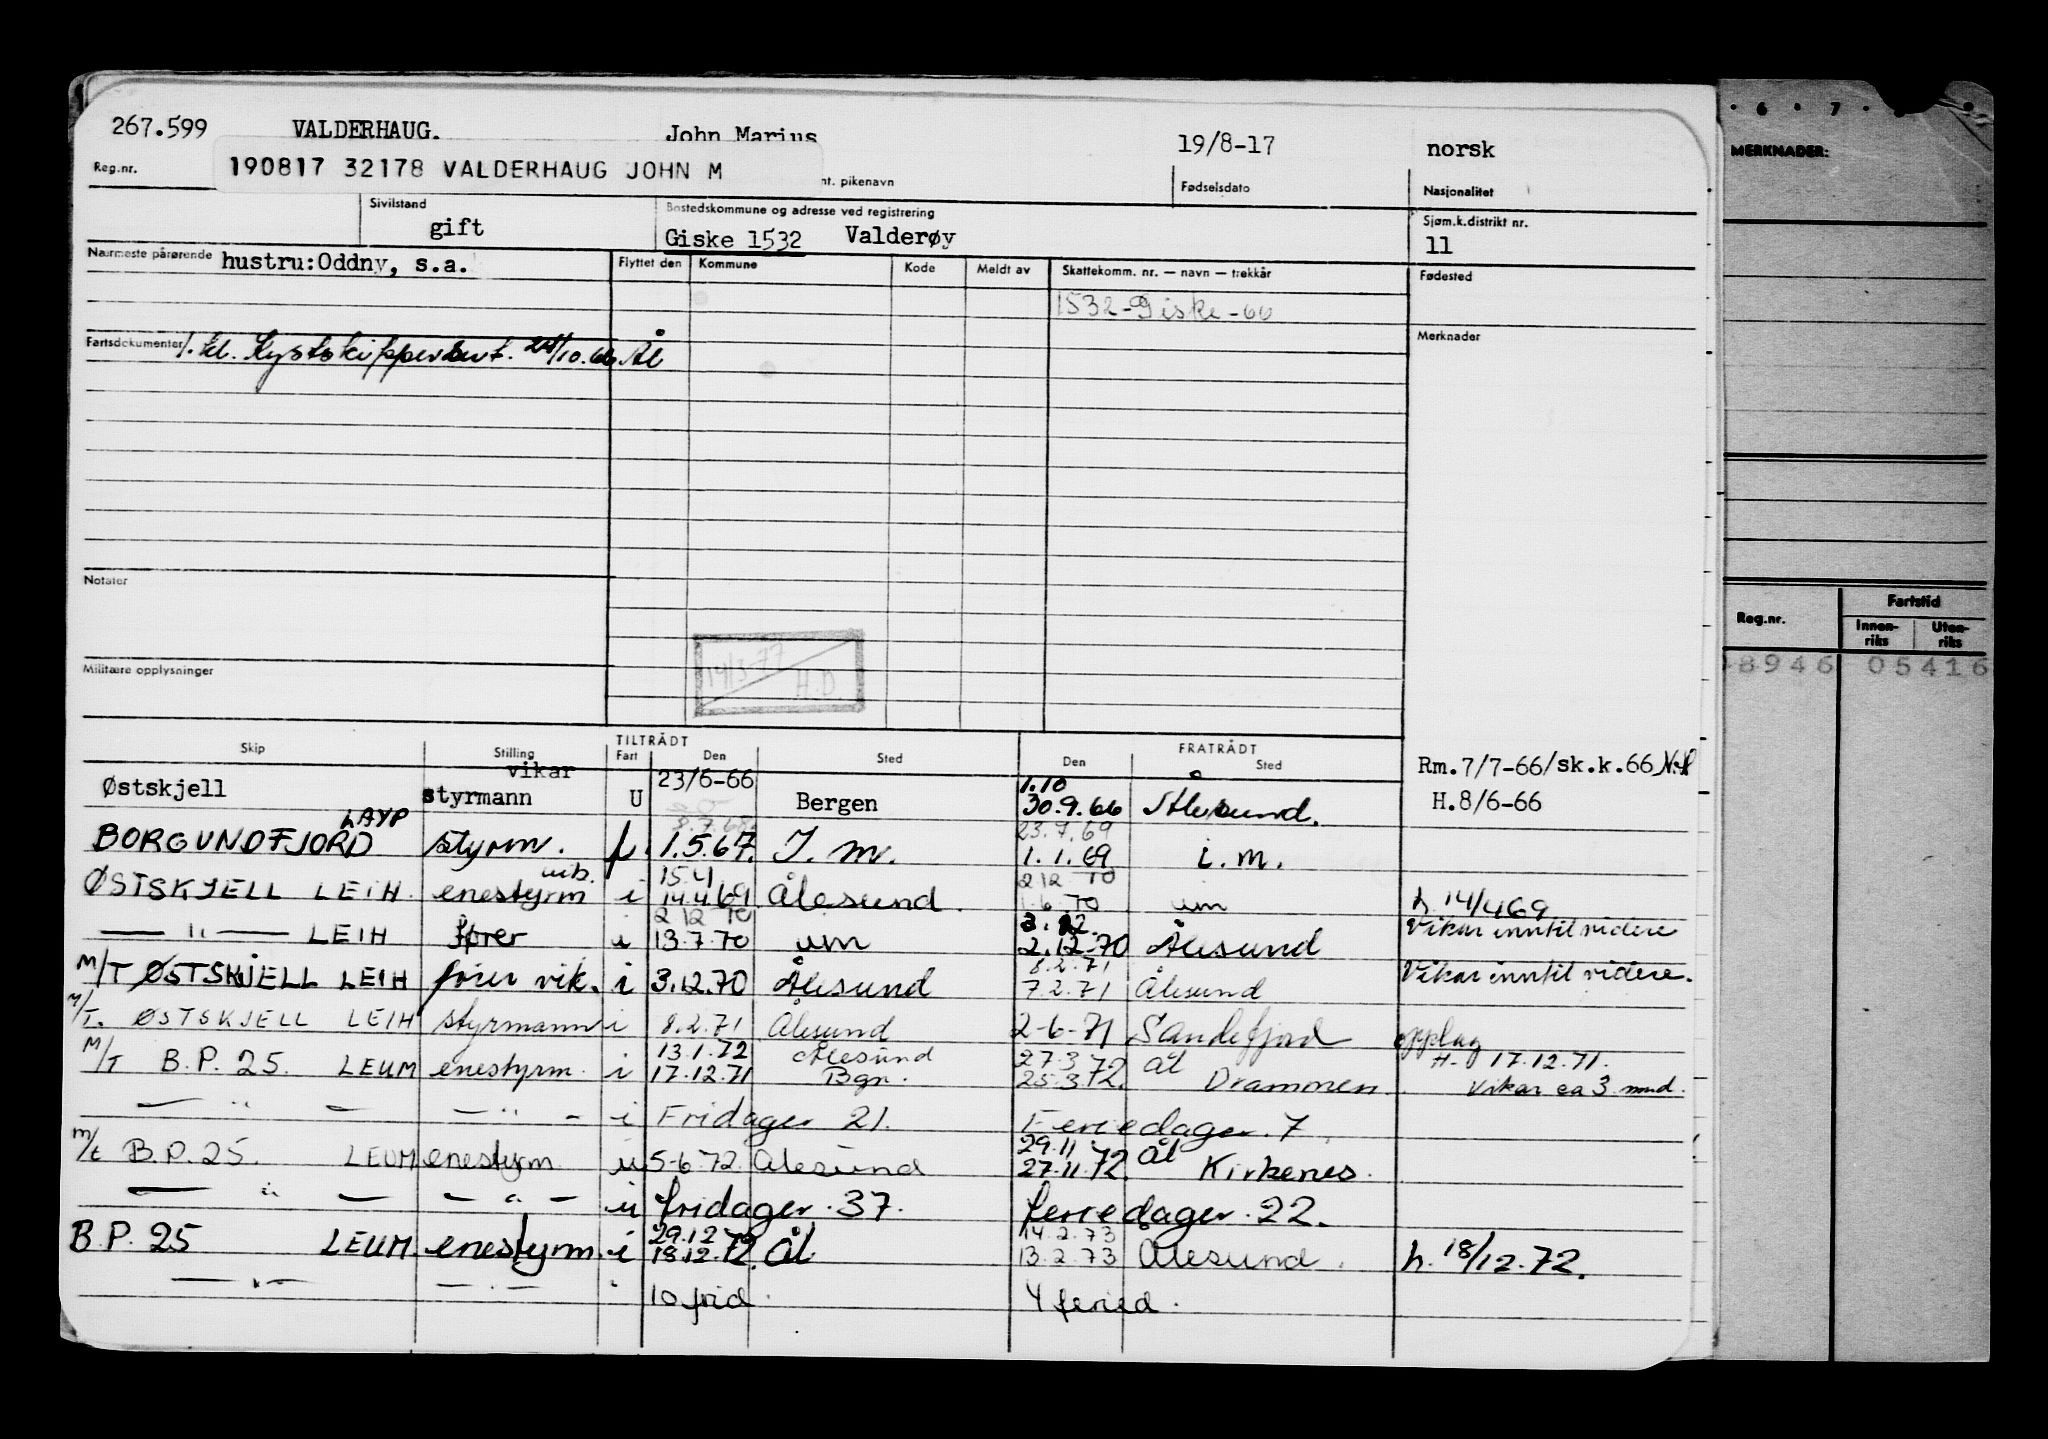 267.599 VALDERHAUG. John Marius 19/8-17 norsk
Reg.nr. 190817 32178 VALDERHAUG JOHN M nt. pikenavn Fødselsdato Nasjonalitet
Sivilstand Bostedskommune og adresse ved registrering Sjøm.k.distrikt nr.
gift Giske 1532 Valderøy 11
Nærmeste pårørende hustru:Oddny, s.a. Flyttet den Kommune Kode Meldt av Skattekomm. nr. — navn — trekkår Fødested
1532-Giske-60
Fartsdokumenter 1. kl. Kystskippersert. /10.66 Ål Merknader
Notater
14/3-77
H.D.
Militære opplysninger
TILTRÅDT FRATRÅDT
Skip Stilling Fart Den Sted Den Sted
Østskjell vikar styrmann U 23/6-66 Bergen 1.10 30.9.66 Ålesund. Rm.7/7-66/sk.k.66
H.8/6-66
BORGUNDFJORD LAYP styrm. f. 1.5.67. I. m. 23.7.69 1.1.69 i.m.
ØSTSKJELL LEIH. enestyrm i 15.4 14.4.69 Ålesund. 2 12 70 1.6.70 um h. 14/4 69
— " — LEIH fører u 2 12 70 13.7.70 um 3.12. 2.12.70 Ålesund Vikar inntil videre
M/T ØSTSKJELL LEIH fører vik. i 3.12.70 Ålesund 8.2.71 7.2.71 Ålesund Vikar inntil videre.
M/T. ØSTSKJELL LEIH styrmann i 8.2.71 Ålesund 2-6-71 Sandefjord opplag
M/T B.P. 25. LEUM enestyrm. i 13.1.72 17.12.71 Ålesund Bgn. 27.3 72 25.3 72. Ål Drammen H. 17.12.71. Vikar ca 3 mnd.
— " — — " — i Fridager 21. Feriedager. 7
m/t B.P. 25. LEUM enestyrm u 5-6.72 Ålesund 29.11 27.11.72. Ål Kirkenes.
— " — — " — u fridager. 37. feriedager. 22.
B.P. 25 LEUM enestyrm. i 29.12 18.12.72. Ål 14.2.73 13.2.73 Ålesund. h. 18/12.72.
— " — — " — 10 frid. 4 feried.
6 7
MERKNADER:
Reg.nr. Fartstid
Innenriks Utenriks
8946 05416